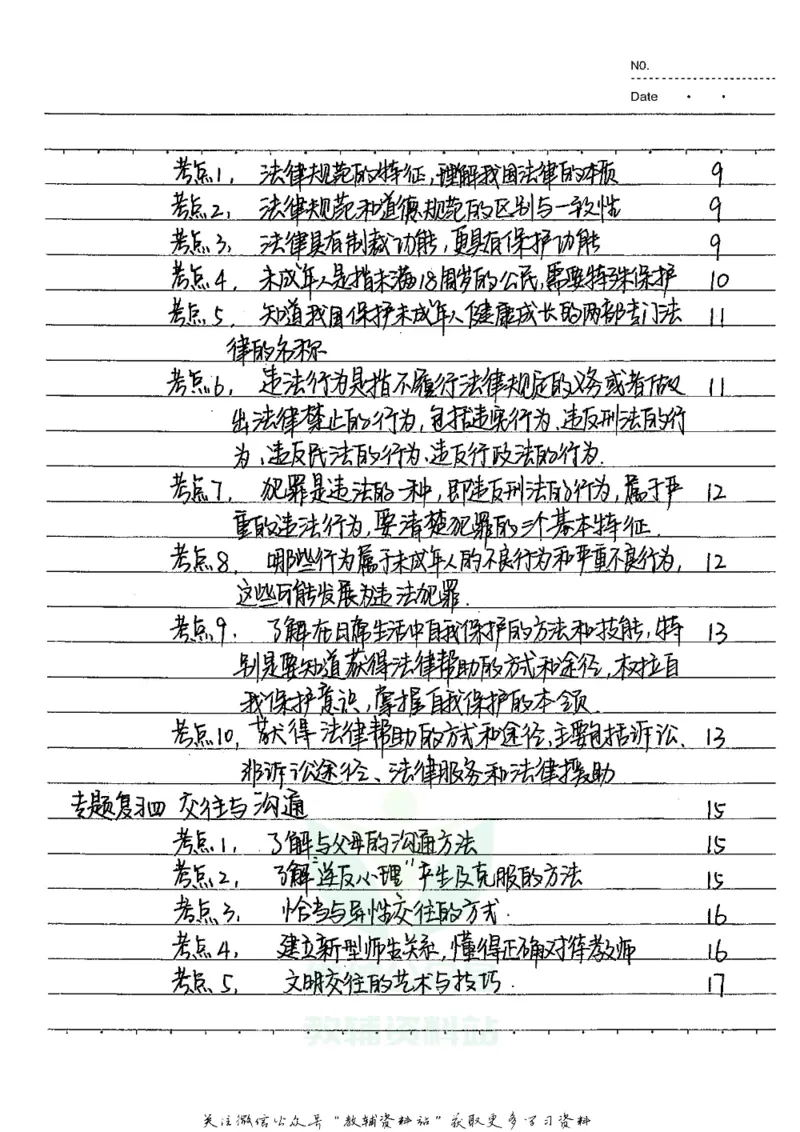 NO.
Date
考点1, 法律规范的特征,理解我国法律的本质 9
考点2, 法律规范和道德规范的区别与一致性 9
考点3, 法律具有制裁功能,更具有保护功能 9
考点4, 未成年人是指未满18周岁的公民,需要特殊保护 10
考点5, 知道我国保护未成年人健康成长的两部专门法 11
律的名称
考点6, 违法行为是指不履行法律规定的义务或者做 11
出法律禁止的行为,包括违宪行为、违反刑法的行
为、违反民法的行为、违反行政法的行为.
考点7, 犯罪是违法的一种,即违反刑法的行为,属于严 12
重的违法行为,要清楚犯罪的三个基本特征.
考点8, 哪些行为属于未成年人的不良行为和严重不良行为, 12
这些可能发展为违法犯罪.
考点9, 了解在日常生活中自我保护的方法和技能,特 13
别是要知道获得法律帮助的方式和途径,树立自
我保护意识,掌握自我保护的本领.
考点10, 获得法律帮助的方式和途径,主要包括诉讼、 13
非诉讼途径、法律服务和法律援助
专题复习四 交往与沟通 15
考点1, 了解与父母的沟通方法 15
考点2, 了解“逆反心理”产生及克服的方法 15
考点3, 恰当与异性交往的方式. 16
考点4, 建立新型师生关系,懂得正确对待教师 16
考点5, 文明交往的艺术与技巧. 17
教辅资料站
关注微信公众号“教辅资料站”获取更多学习资料